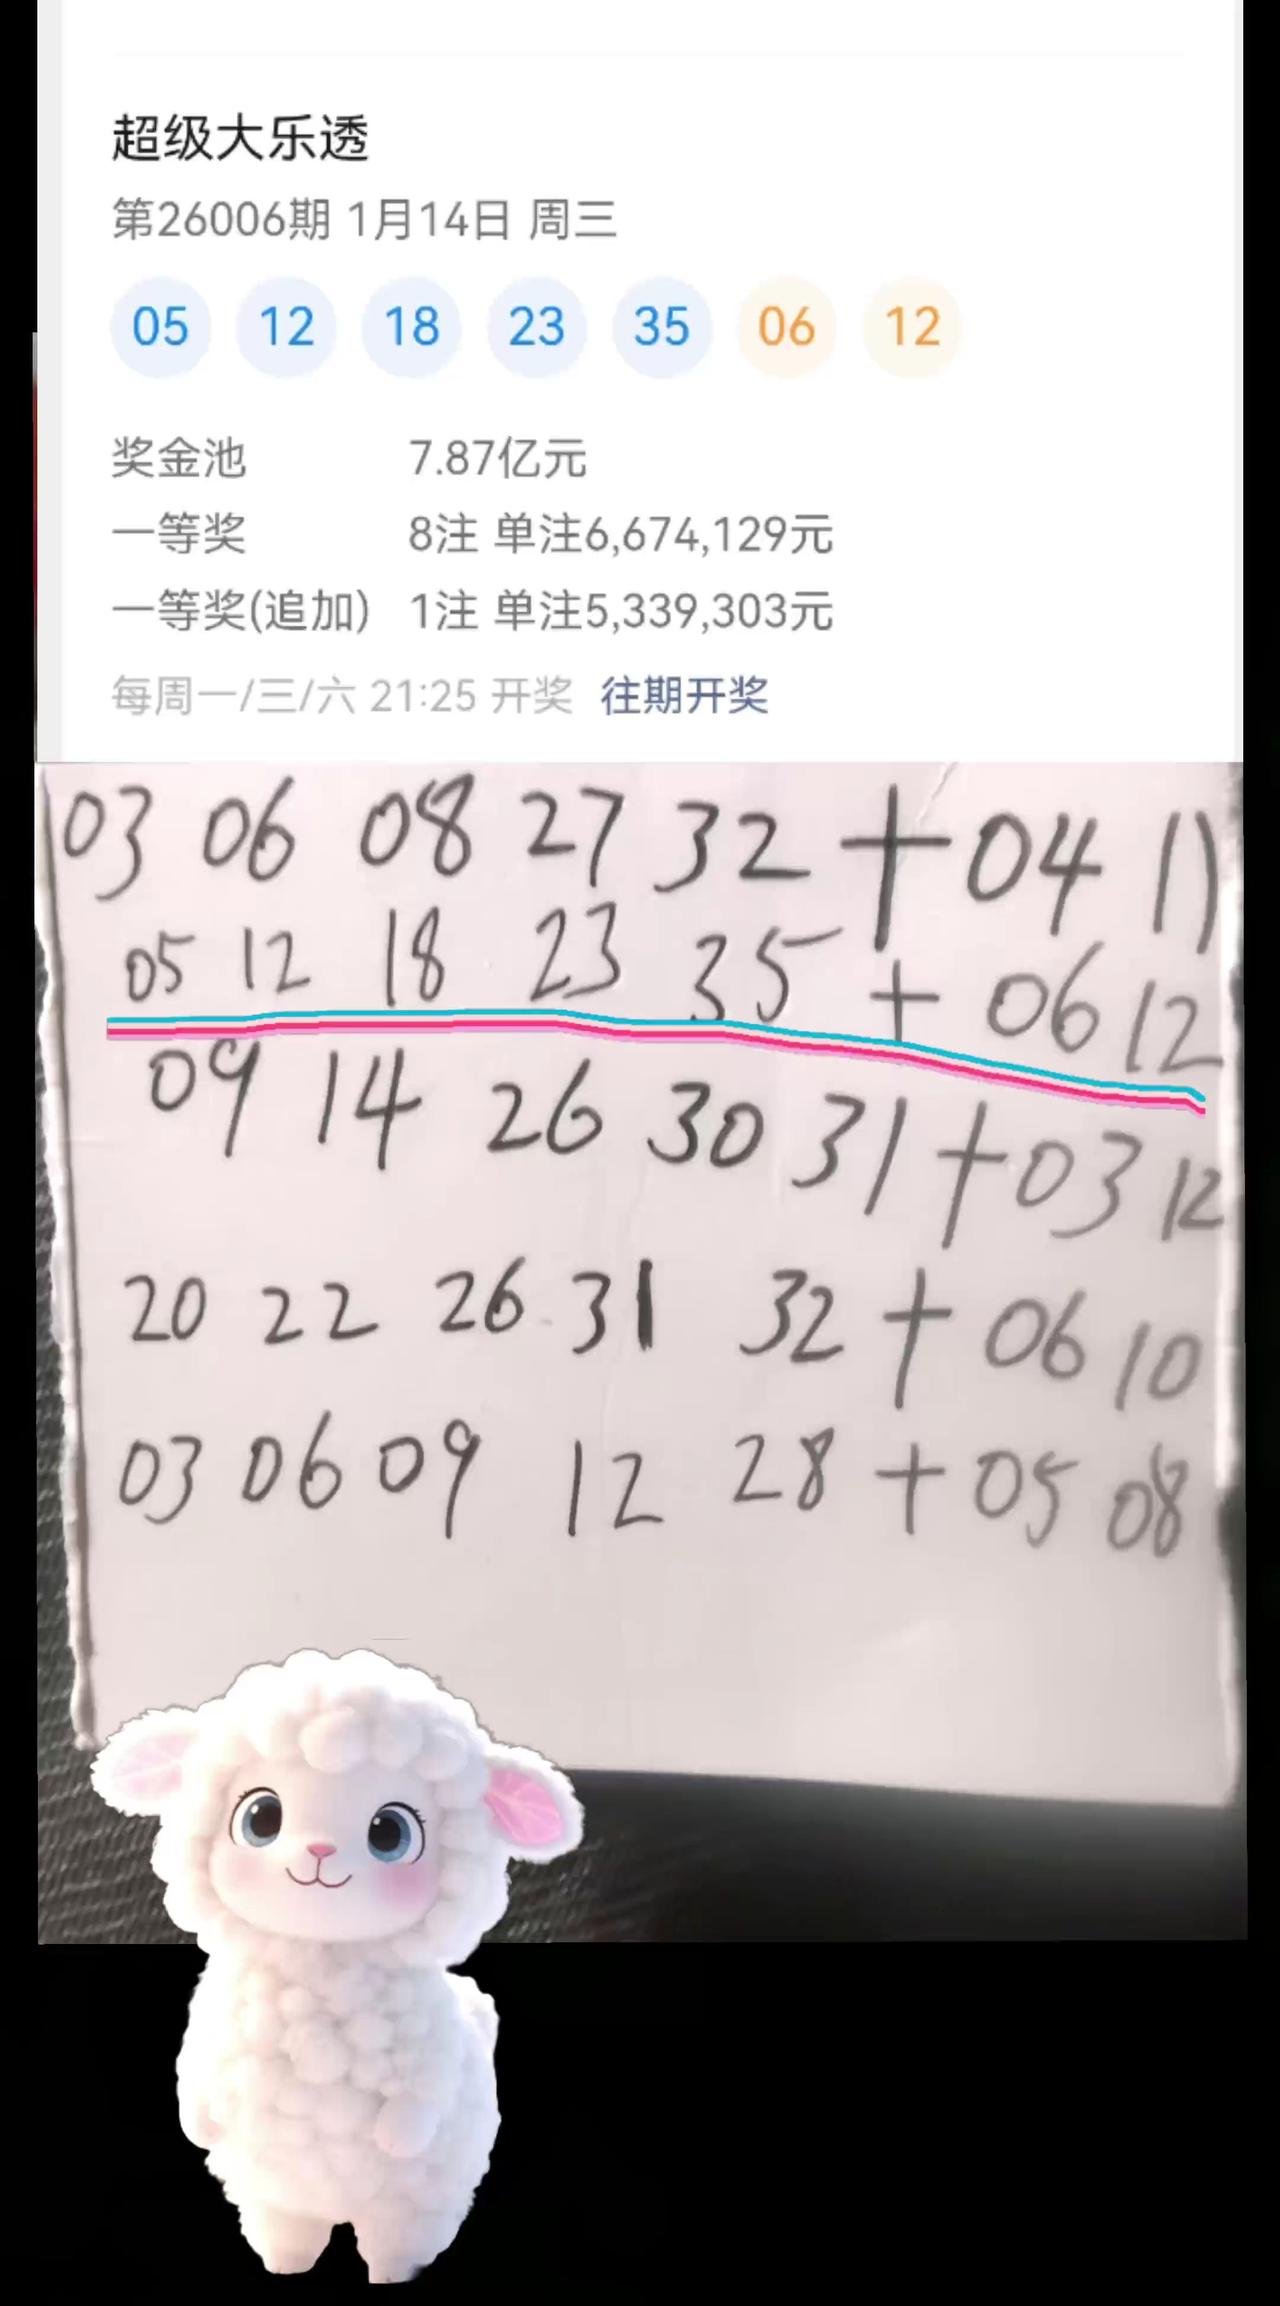 超级大乐透
第26006期 1月14日 周三
05 12 18 23 35 06 12
奖金池 7.87亿元
一等奖 8注 单注6,674,129元
一等奖(追加) 1注 单注5,339,303元
每周一/三/六 21:25 开奖 往期开奖
03 06 08 27 32 + 04 11
05 12 18 23 35 + 06 12
09 14 26 30 31 + 03 12
20 22 26 31 32 + 06 10
03 06 09 12 28 + 05 08